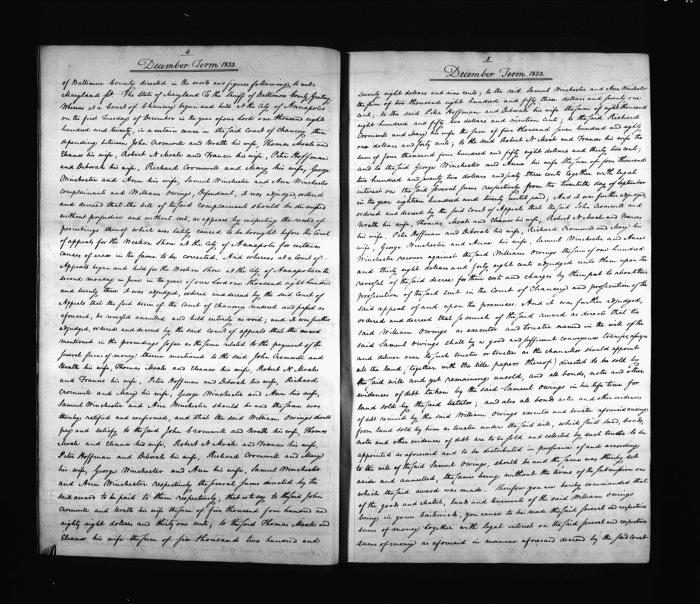 4
December Term 1823
of Baltimore County directed in the words and figures following, to wit:
Maryland Sct. The State of Maryland To the Sheriff of Baltimore County Greeting
Whereas at a Court of Chancery begun and held at the City of Annapolis
on the first Tuesday of December in the year of our Lord one thousand eight
hundred and twenty, in a certain cause in the said Court of Chancery then
depending between John Cromwell and Urath his wife, Thomas Moale and
Eleanor his wife, Robert N. Moale and Frances his wife, Peter Hoffman
and Deborah his wife, Richard Cromwell and Mary his wife, George
Winchester and Ann his wife, Samuel Winchester and Ann Winchester
complainants and William Owings, Defendant, it was adjudged ordered
and decreed that the bill of the said complainants should be dismissed
without prejudice and without costs, as appears by inspecting the record of
proceedings thereof which was lately caused to be brought before the Court
of appeals for the Western Shore at the City of Annapolis for certain
causes of error in the same to be corrected. And whereas at a Court of
Appeals begun and held for the Western Shore at the City of Annapolis on the
second monday in June in the year of our Lord one thousand eight hundred
and twenty three it was adjudged, ordered and decreed by the said Court of
Appeals that the said decree of the Court of Chancery rendered and passed as
aforesaid, be reversed annulled and held entirely as void; and it was further
adjudged, ordered and decreed by the said Court of appeals that the award
mentioned in the proceedings so far as the same related to the payment of the
several sums of money therein mentioned to the said John Cromwell and
Urath his wife, Thomas Moale and Eleanor his wife, Robert N. Moale
and Frances his wife, Peter Hoffman and Deborah his wife, Richard
Cromwell and Mary his wife, George Winchester and Ann his wife,
Samuel Winchester and Ann Winchester should be and the same was
thereby ratified and confirmed, and that the said William Owings should
pay and satisfy to the said John Cromwell and Urath his wife, Thomas
Moale and Eleanor his wife, Robert N. Moale and Frances his wife,
Peter Hoffman and Deborah his wife, Richard Cromwell and Mary
his wife, George Winchester and Ann his wife, Samuel Winchester
and Ann Winchester respectively the several sums directed by the
said award to be paid to them respectively; that is to say to the said John
Cromwell and Urath his wife the sum of five thousand four hundred and
eighty eight dollars and thirty one cents; to the said Thomas Moale and
Eleanor his wife the sum of six thousand two hundred and
5
December Term 1823.
twenty eight dollars and nine cents; to the said Samuel Winchester and Ann Winchester
the sum of two thousand eight hundred and fifty three dollars and seventy one
cents; to the said Peter Hoffman and Deborah his wife the sum of eight thousand
eight hundred and fifty two dollars and nineteen cents; to the said Richard
Cromwell and Mary his wife the sum of five thousand seven hundred and eighty
one dollars and forty cents; to the said Robert N. Moale and Frances his wife the
sum of four thousand four hundred and fifty eight dollars and thirty two cents;
and to the said George Winchester and Anna his wife the sum of four thousand
two hundred and seventy two dollars and sixty three cents together with legal
interest on the said several sums respectively from the twentieth day of September
in the year eighteen hundred and twenty until paid; And it was further adjudged
ordered and decreed by the said Court of Appeals that the said John Cromwell and
Urath his wife, Thomas Moale and Eleanor his wife, Robert N. Moale and Frances
his wife, Peter Hoffman and Deborah his wife, Richard Cromwell and Mary his
wife, George Winchester and Anna his wife, Samuel Winchester and Anna
Winchester recover against the said William Owings the sum of one hundred
and thirty eight dollars and forty eight cents adjudged unto them upon the
reversal of the said decree for their costs and charges by them put to about their
prosecution of the suit in the Court of Chancery and prosecution of the
said appeal and upon the premises. And it was further adjudged,
ordered and decreed that so much of the said award as directs that the
said William Owings as executor and trustee named in the will of the
said Samuel Owings shall by a good and sufficient conveyance transfer, assign
and deliver over to such trustee or trustees as the chancellor should appoint
all the land, (together with the title papers thereof) directed to be sold by
the said will and yet remaining unsold, and all bonds, note and other
evidences of debt taken by the said Samuel Owings in his life time for
land sold by the said testator; and also all bonds notes and other evidences
of debt received by the said William Owings executor and trustee aforesaid arising
from land sold by him as trustee under the said will, which said land, bonds,
notes and other evidences of debt are to be sold and collected by such trustee to be
appointed as aforesaid and to be distributed in pursuance of and according
to the will of the said Samuel Owings, should be and the same was thereby set
aside and annulled, the same being without the terms of the submission on
which the said award was made. Therefore you are hereby commanded that
of the goods and chattels, lands and tenements of the said William Owings
being in your bailiwick, you cause to be made the said several and respective
sums of money together with legal interest on the said several and respective
sums of money as aforesaid in manner aforesaid decreed by the said court